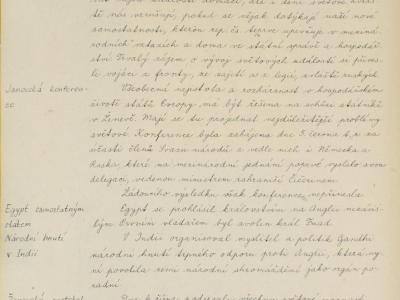 nás vzrušují, pokud se nějak dotýkají naší nové
samostatnosti, kterou rep. čs. teprve upevňuje v meziná-
rodních vztazích a doma ve státní správě a hospodář-
ství. Trvalý zájem o vývoj světových událostí si přivez-
li vojáci z fronty, ze zajetí a z legií, zvláště ruských.
Janovská konferen-
ce
Všeobecná nejistota a rozháranost v hospodářském
životě států Evropy má být řešena na schůzi státníků
v Ženevě. Mají se tu projednat nejdůležitější problémy
světové. Konference byla zahájena dne 5. června t.r. za
účasti členů Svazu národů a vedle nich i Německa a
Ruska, které na mezinárodní jednání poprvé vyslalo svou
delegaci, vedenou ministrem zahraničí Čičerinem.
Žádoucího výsledku však konference nepřinesla.
Egypt samostatným
státem
Egypt se prohlásil královstvím na Anglii nezávis-
lým. Prvním vladařem byl zvolen král Fuad.
Národní hnutí
v Indii
V Indii organisoval myslitel a politik Gandhi
národní hnutí trpného odporu proti Anglii, která vy-
ní povolila zemi národní shromáždění jako orgán po-
radní.